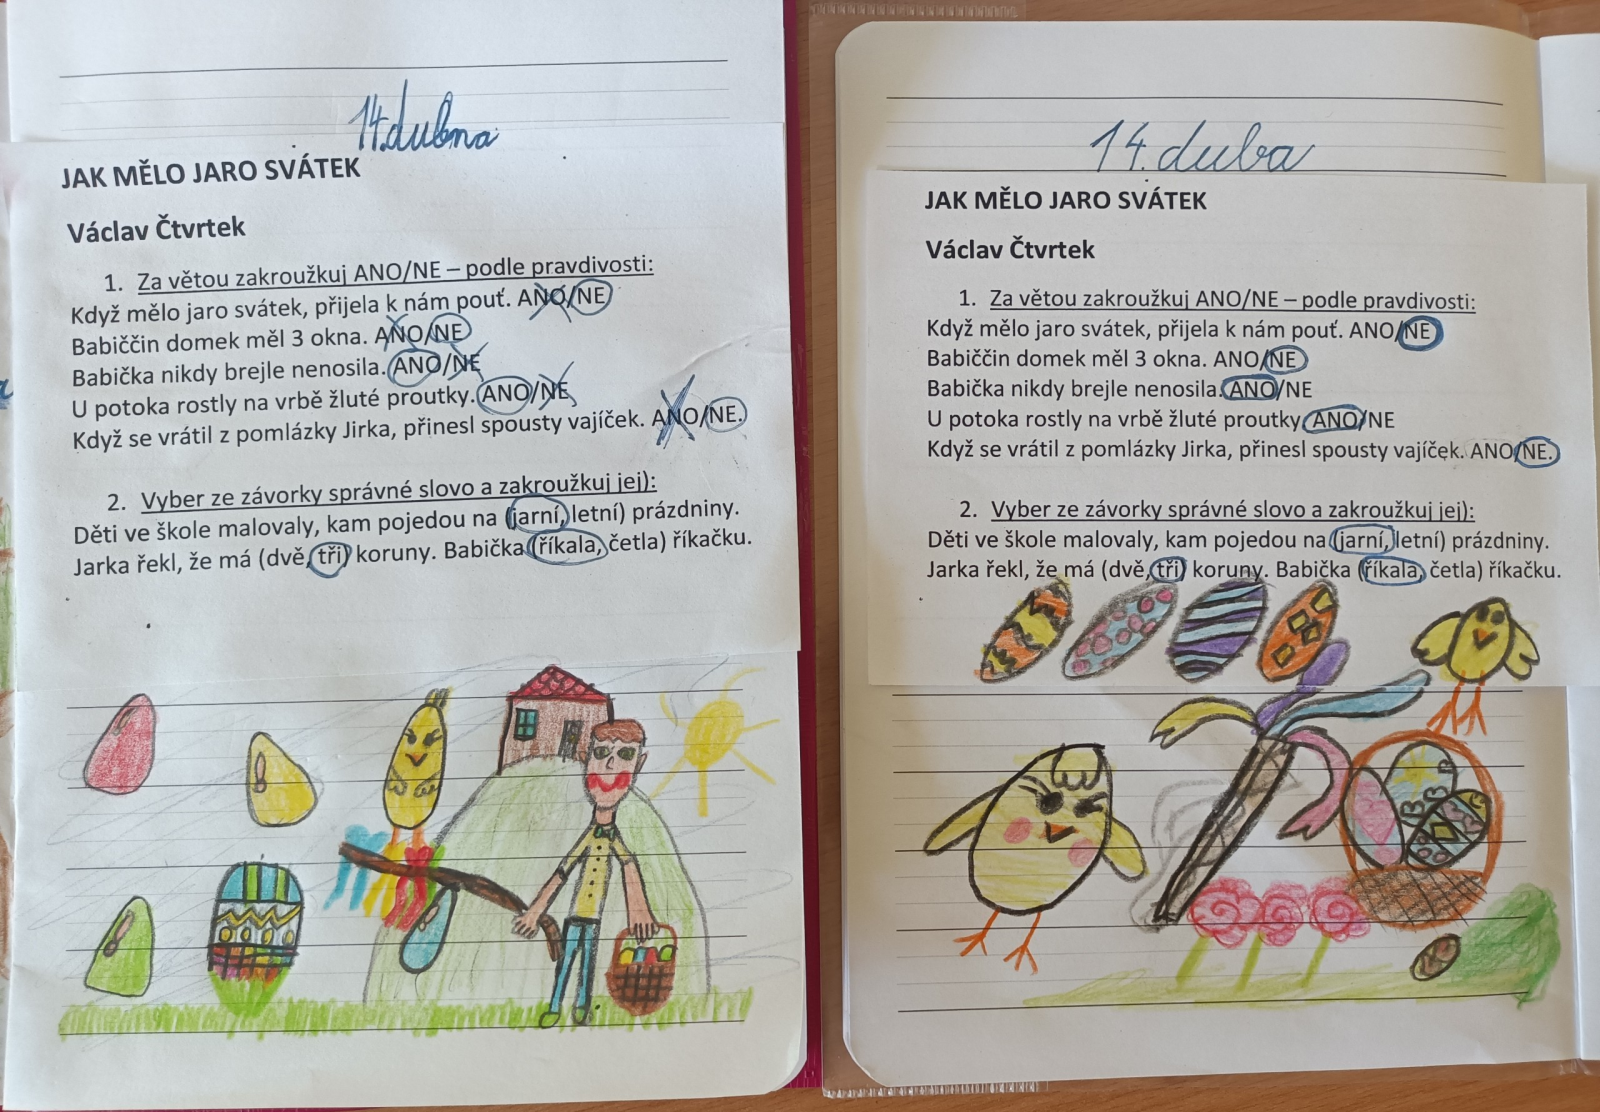 14.dubna
JAK MĚLO JARO SVÁTEK
Václav Čtvrtek
1. Za větou zakroužkuj ANO/NE – podle pravdivosti:
Když mělo jaro svátek, přijela k nám pouť. ANO/NE
Babiččin domek měl 3 okna. ANO/NE
Babička nikdy brejle nenosila. ANO/NE
U potoka rostly na vrbě žluté proutky. ANO/NE
Když se vrátil z pomlázky Jirka, přinesl spousty vajíček. ANO/NE.
2. Vyber ze závorky správné slovo a zakroužkuj jej):
Děti ve škole malovaly, kam pojedou na (jarní, letní) prázdniny.
Jarka řekl, že má (dvě, tři) koruny. Babička (říkala, četla) říkačku.
14. duba
JAK MĚLO JARO SVÁTEK
Václav Čtvrtek
1. Za větou zakroužkuj ANO/NE – podle pravdivosti:
Když mělo jaro svátek, přijela k nám pouť. ANO/NE
Babiččin domek měl 3 okna. ANO/NE
Babička nikdy brejle nenosila. ANO/NE
U potoka rostly na vrbě žluté proutky. ANO/NE
Když se vrátil z pomlázky Jirka, přinesl spousty vajíček. ANO/NE.
2. Vyber ze závorky správné slovo a zakroužkuj jej):
Děti ve škole malovaly, kam pojedou na (jarní, letní) prázdniny.
Jarka řekl, že má (dvě, tři) koruny. Babička (říkala, četla) říkačku.